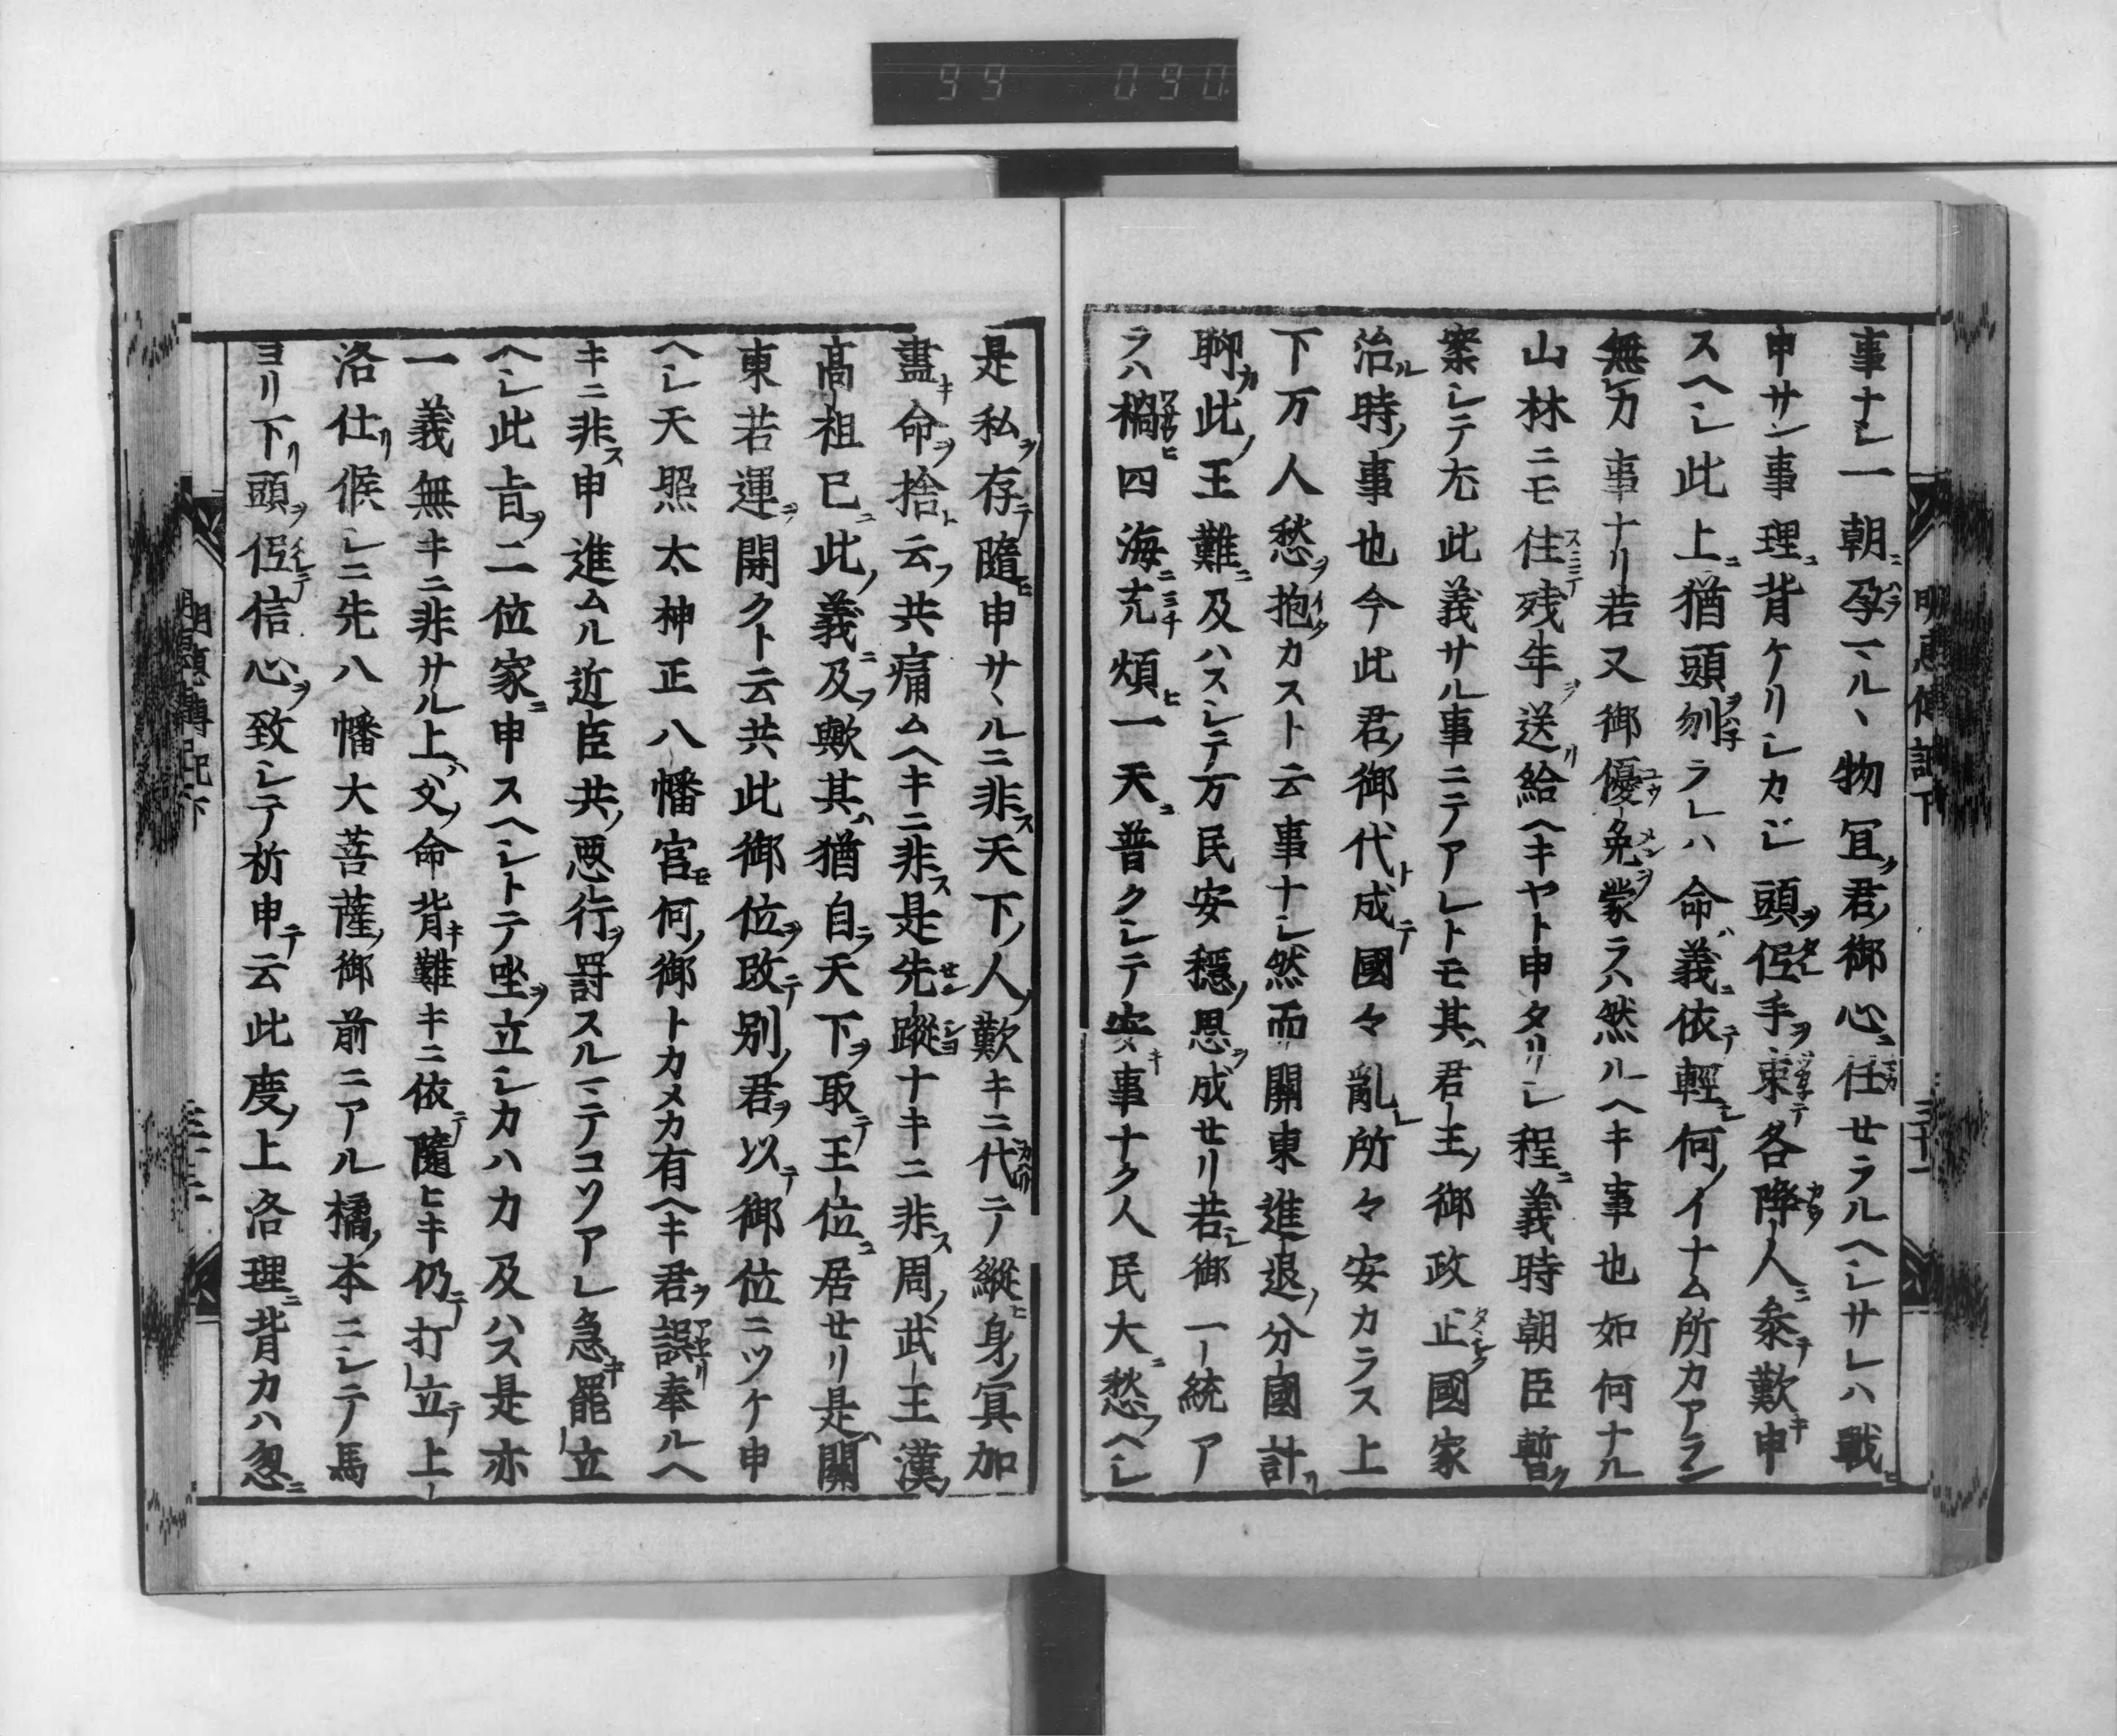 99 090
事ナシ一朝ニ孕マルヽ物冝ク君ノ御心ニ任セラルヘシサレハ戰ヒ
申サン事理ニ背ケリシカジ頭ヲ低レ手ヲ束テ各降人ニ参テ歎キ申
スヘシ此上ニ猶頭ヲ刎ラレハ命ハ義ニ依テ輕シ何ノイナム所カアラン
無力事ナリ若又御優免ヲ蒙ラハ然ルヘキ事也如何ナル
山林ニモ住テ残年ヲ送リ給ヘキヤト申タリシ程ニ義時朝臣暫ク
案シテ尤此義サル事ニテアレトモ其ハ君王ノ御政正ク國家
治ル時ノ事也今此君ノ御代ト成テ國々亂レ所々安カラス上
下万人愁ヲ抱カスト云事ナシ然而關東進退ノ分國計リ
聊カ此ノ王難ニ及ハスシテ万民安穏ノ思ヲ成セリ若シ御一統ア
ラハ禍ヒ四海ニ充チ煩ヒ一天ニ普クシテ安キ事ナク人民大ニ愁フヘシ
明惠傳記下
三十一
是私ヲ存テ隨ヒ申サヽルニ非ス天下ノ人ノ歎キニ代テノ縱ヒ身ノ冥加
盡キ命ヲ捨ト云フ共痛ムヘキニ非ス是先蹤ナキニ非ス周ノ武王漢ノ
髙祖已ニ此ノ義ニ及フ歟其ハ猶自ラ天下ヲ取テ王位ニ居セリ是ハ關
東若運ヲ開クト云共此御位ヲ改テ別ノ君ヲ以テ御位ニツケ申
ヘシ天照太神正八幡宮モ何ノ御トカメカ有ヘキ君ヲ誤リ奉ルヘ
キニ非ス申進ムル近臣共ノ悪行ヲ罰スルニテコソアレ急キ罷立
ヘシ此㫖ヲ二位家ニ申スヘシトテ坐ヲ立シカハ力及ハス是亦
一義無キニ非サル上ハ父ノ命背キ難キニ依テ隨ヒキ仍テ打立テ上
洛仕リ候シニ先八幡大菩薩ノ御前ニアル橘ノ本ニシテ馬
ヨリ下リ頭ヲ低テ信心ヲ致シテ祈申テ云此度ノ上洛理ニ背カハ忽ニ
明惠傳記下